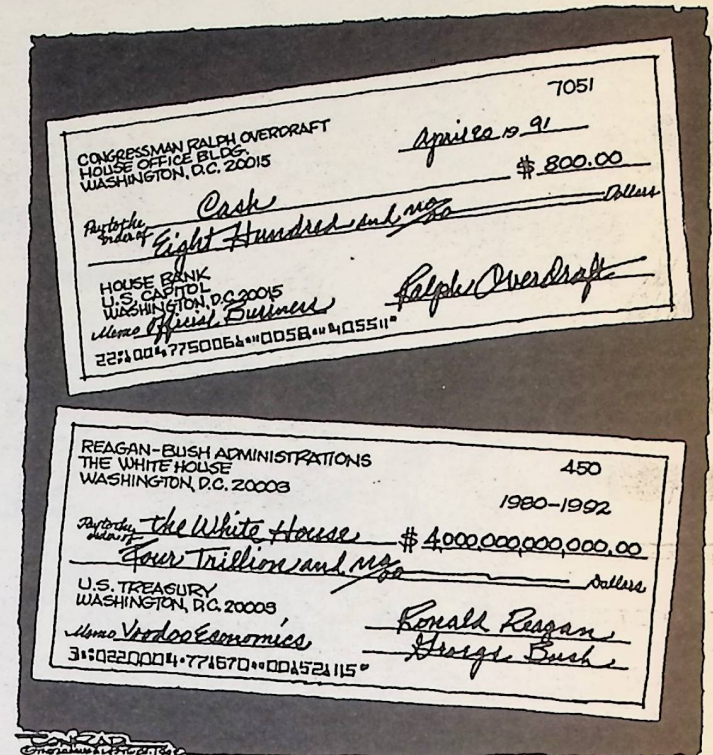 7051
CONGRESSMAN RALPH OVERDRAFT
HOUSE OFFICE BLDG.
WASHINGTON, D.C. 20015
April 20 19 91
$ 800.00
Pay to the order of Cash
Eight Hundred and no/00 Dollars
HOUSE BANK
U.S. CAPITOL
WASHINGTON, D.C. 20015
Memo Official Business
Ralph Overdraft
REAGAN-BUSH ADMINISTRATIONS
THE WHITE HOUSE
WASHINGTON, D.C. 20003
450
1980-1992
Pay to the order of the White House $ 4,000,000,000,000.00
Four Trillion and no/00 Dollars
U.S. TREASURY
WASHINGTON, D.C. 20003
Memo Voodoo Economics
Ronald Reagan
George Bush
CONRAD